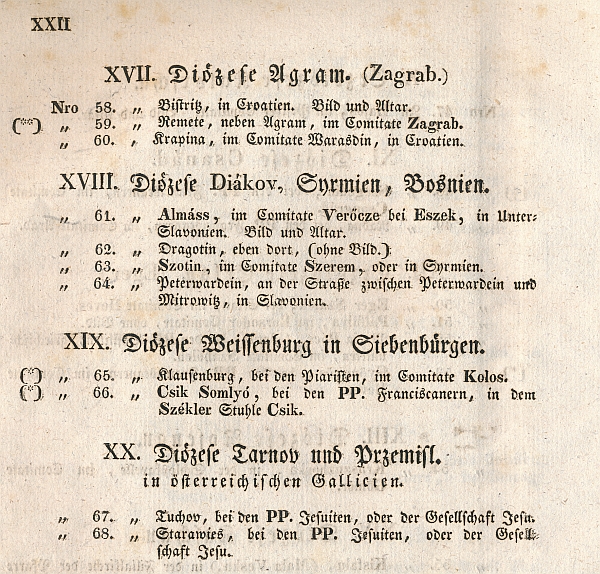 XXII
XVII. Diözese Agram. (Zagrab.)
Nro 58. „ Bistritz, in Croatien. Bild und Altar.
(**) „ 59. „ Remete, neben Agram, im Comitate Zagrab.
„ 60. „ Krapina, im Comitate Warasdin, in Croatien.
XVIII. Diözese Diákov, Syrmien, Bosnien.
„ 61. „ Almáss, im Comitate Verőcze bei Eszek, in Unter-
Slavonien. Bild und Altar.
„ 62. „ Dragotin, eben dort, (ohne Bild.)
„ 63. „ Szotin, im Comitate Szerem, oder in Syrmien.
„ 64. „ Peterwardein, an der Straße zwischen Peterwardein und
Mitrowitz, in Slavonien.
XIX. Diözese Weissenburg in Siebenbürgen.
(*) „ 65. „ Klausenburg, bei den Piaristen, im Comitate Kolos.
(*) „ 66. „ Csik Somlyó, bei den PP. Franciscanern, in dem
Székler Stuhle Csik.
XX. Diözese Tarnov und Przemisl.
in österreichischen Gallicien.
„ 67. „ Tuchov, bei den PP. Jesuiten, oder der Gesellschaft Jesu.
„ 68. „ Starawies, bei den PP. Jesuiten, oder der Gesell-
schaft Jesu.